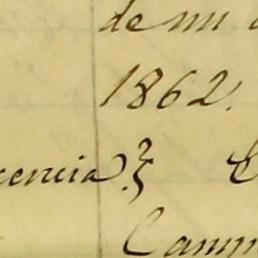 de mi
1862.
cencia.
Camp